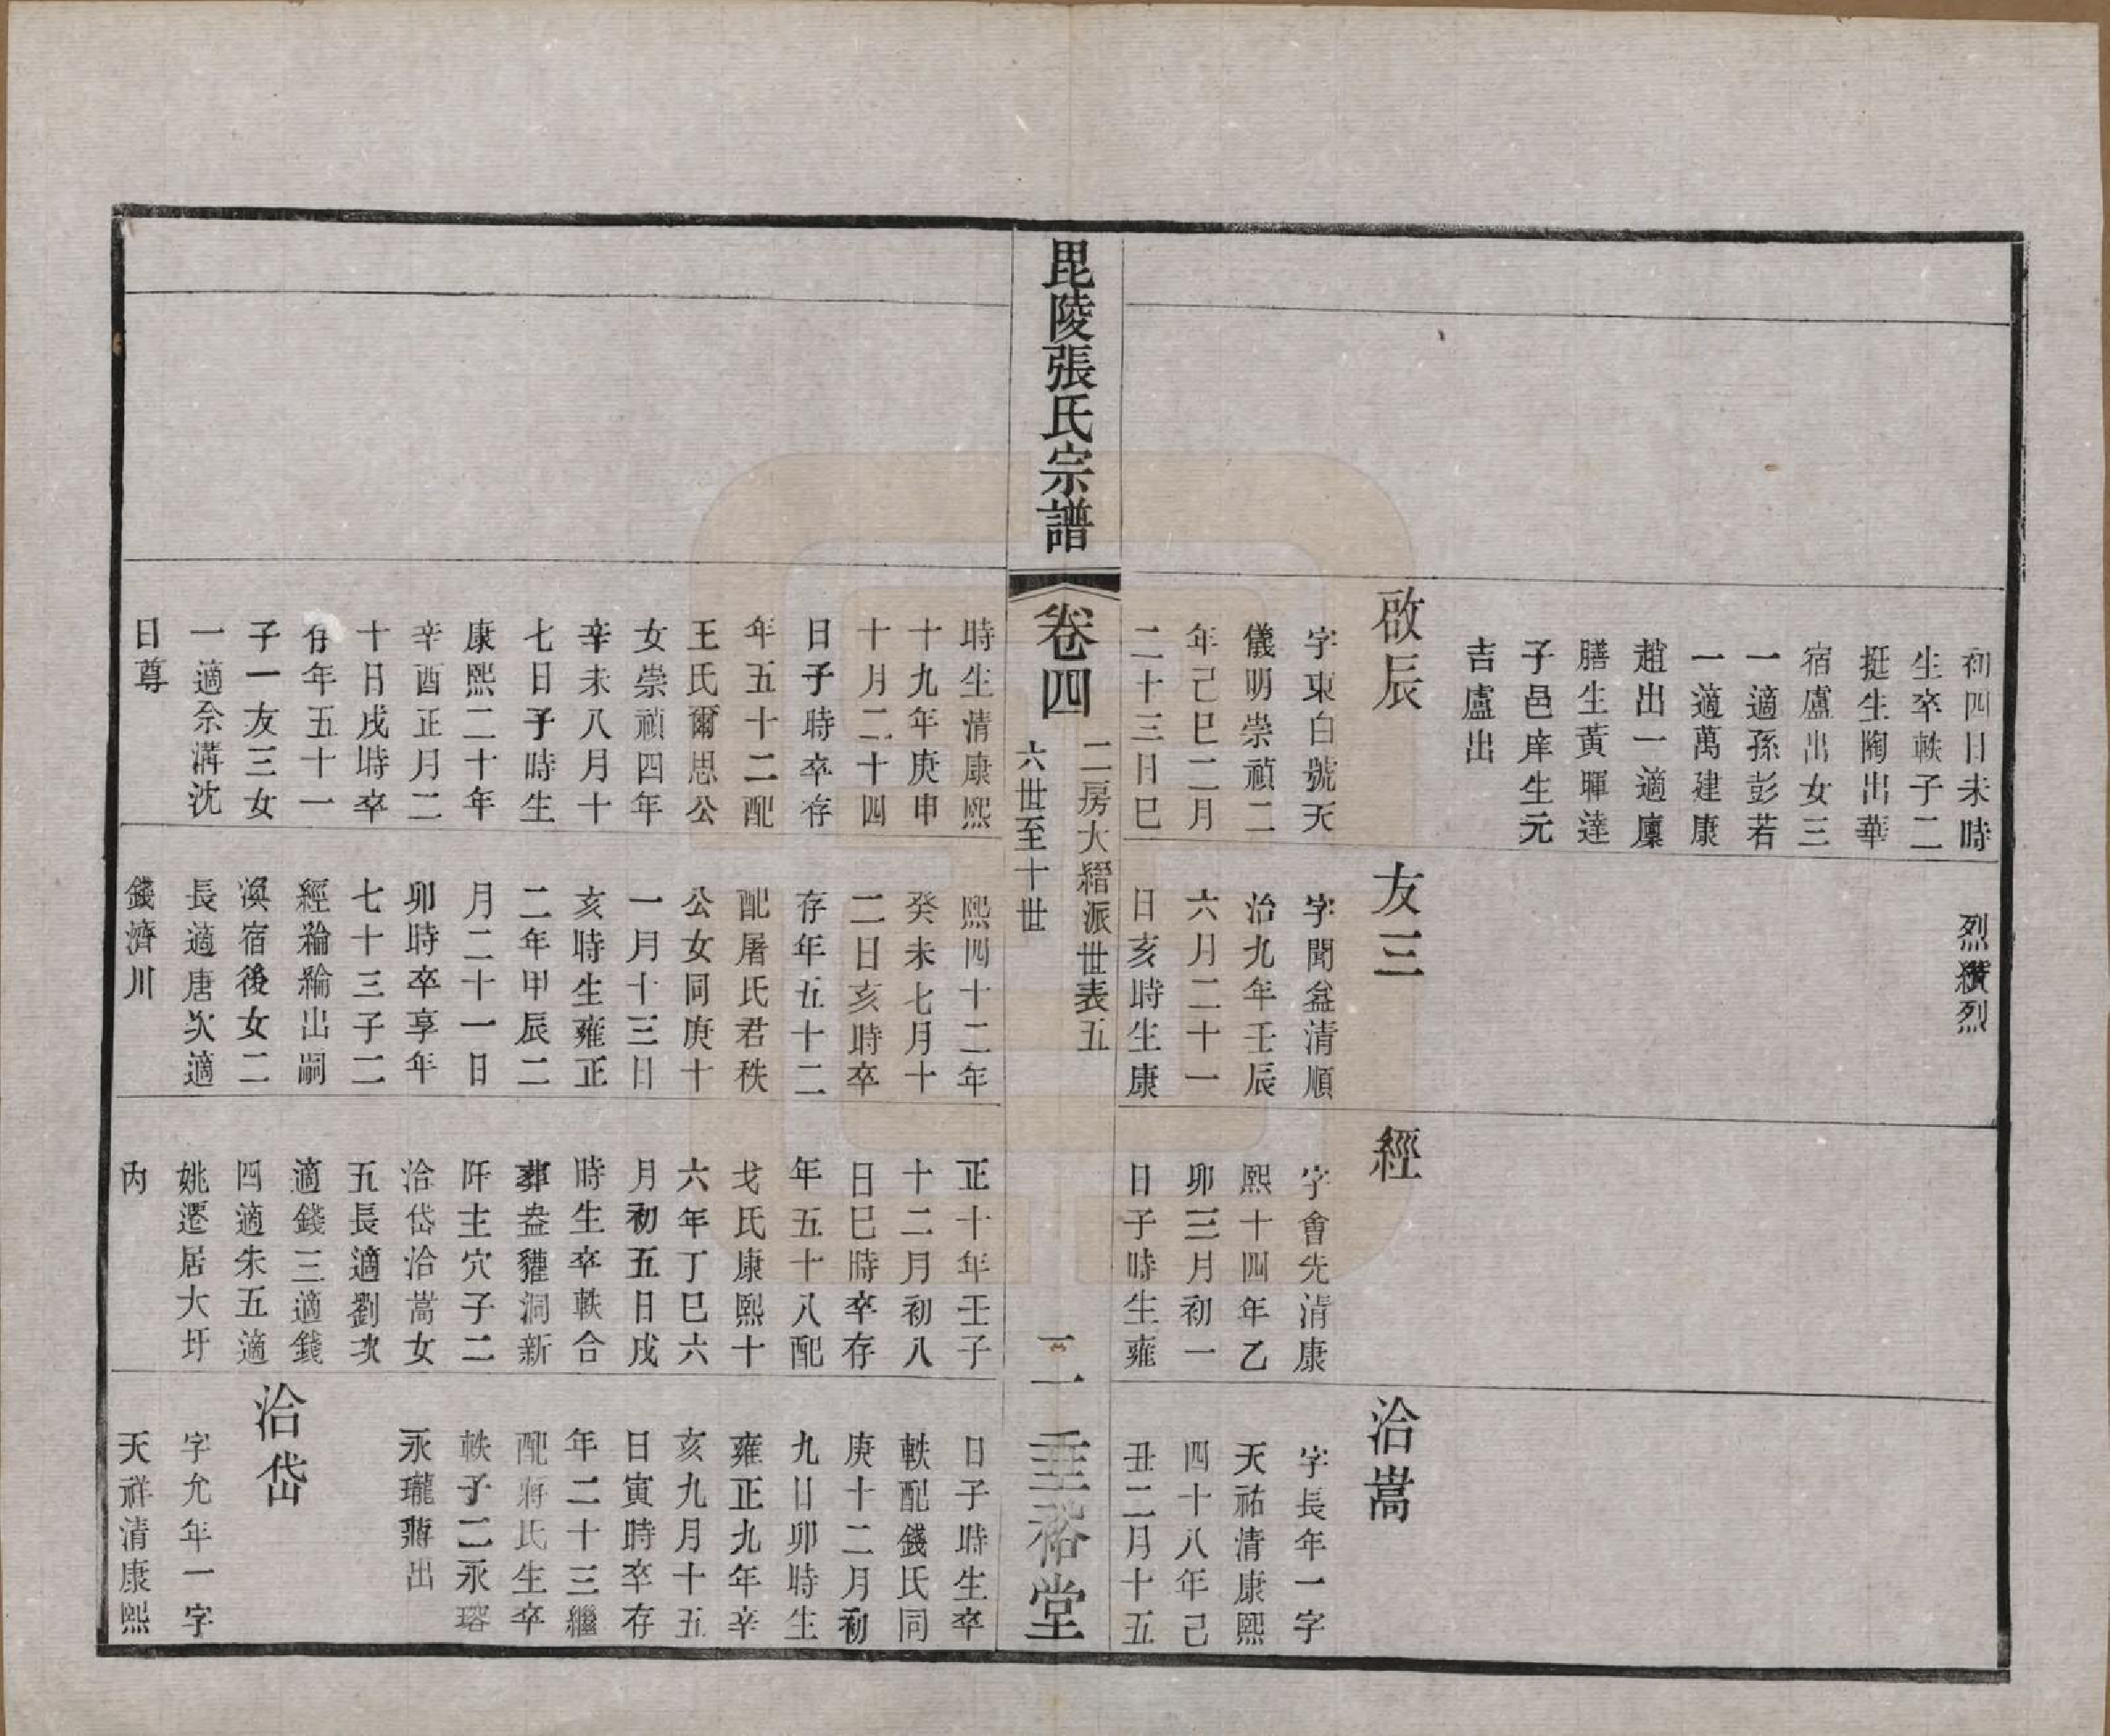 初四日未時
生卒軼子二
挺生陶出華
宿盧出女三
一適孫彭若
一適萬建康
趙出一適廩
膳生黃暉達
子邑庠生元
吉盧出
啟辰
字東白號天
儀明崇禎二
年己巳二月
二十三日巳
烈纘烈
友三
字聞益清順
治九年壬辰
六月二十一
日亥時生康
經
字會先清康
熙十四年乙
卯三月初一
日子時生雍
洽嵩
字長年一字
天祐清康熙
四十八年己
丑二月十五
毘陵張氏宗譜
卷四
二房大縉派世表五
六世至十世
二
垂裕堂
時生清康熙
十九年庚申
十月二十四
日子時卒存
年五十二配
王氏爾思公
女崇禎四年
辛未八月十
七日子時生
康熙二十年
辛酉正月二
十日戌時卒
存年五十一
子一友三女
一適佘溝沈
日尊
熙四十二年
癸未七月十
二日亥時卒
存年五十二
配屠氏君秩
公女同庚十
一月十三日
亥時生雍正
二年甲辰二
月二十一日
卯時卒享年
七十三子二
經綸綸出嗣
渙宿後女二
長適唐次適
錢濟川
正十年壬子
十二月初八
日巳時卒存
年五十八配
戈氏康熙十
六年丁巳六
月初五日戌
時生卒軼合
葬盎貛洞新
阡主穴子二
洽岱洽嵩女
五長適劉次
適錢三適錢
四適朱五適
姚遷居大圩
內
日子時生卒
軼配錢氏同
庚十二月初
九日卯時生
雍正九年辛
亥九月十五
日寅時卒存
年二十三繼
配蔣氏生卒
軼子二永瑢
永瓏蔣出
洽岱
字允年一字
天祥清康熙